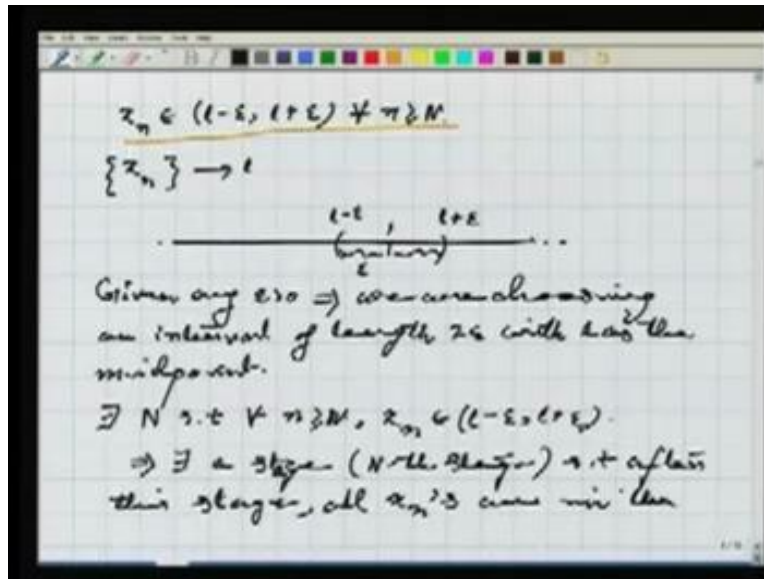 x_n ∈ (l-ε, l+ε) ∀ n ≥ N.
{x_n} → l
l-ε l+ε
l
Given any ε>0 ⇒ we are choosing
an interval of length 2ε with l as the
midpoint.
∃ N s.t ∀ n ≥ N, x_n ∈ (l-ε, l+ε).
⇒ ∃ a stage (N-th stage) s.t after
this stage, all x_n's are in the